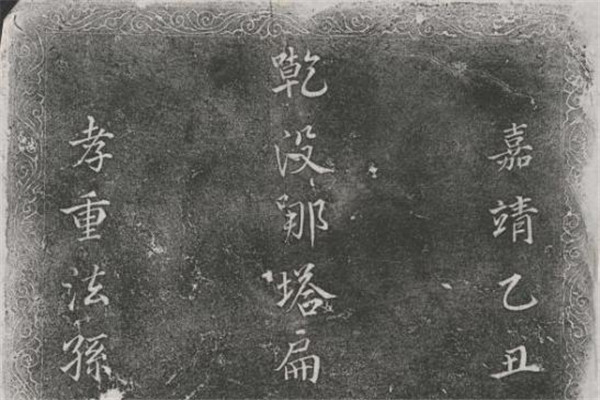 嘉靖乙丑
没哪塔扁
孝重法孫